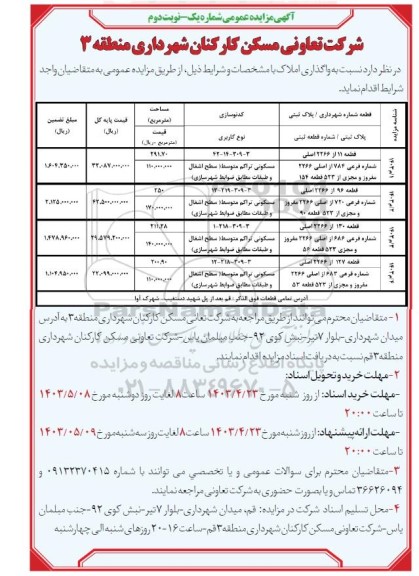 آگهی مزایده عمومی شماره یک-نوبت دوم
شرکت تعاونی مسکن کارکنان شهرداری منطقه ۳
در نظر دارد نسبت به واگذاری املاک با مشخصات و شرایط ذیل، از طریق مزایده عمومی به متقاضیان واجد
شرایط اقدام نماید.
شناسه مزایده
قطعه شماره شهرداری / پلاک ثبتی
کدنوسازی
مساحت (مترمربع)
قیمت پایه کل (ریال)
مبلغ تضمین (ریال)
پلاک ثبتی / شماره قطعه ثبتی
نوع کاربری
قیمت (مترمربع -ریال)
قطعه ۱۱ از ۲۲۶۶ اصلی
۲۹۱.۷۰
شماره فرعی ۷۸۴ از اصلی ۲۲۶۶
مفروز و مجزی از ۵۲۳ قطعه ۱۵۴
مسکونی تراکم متوسط( سطح اشغال
و طبقات مطابق ضوابط شهرسازی)
۱۱۰،۰۰۰،۰۰۰
۳۲،۰۸۷،۰۰۰،۰۰۰
۱،۶۰۴،۳۵۰،۰۰۰
قطعه ۹۶ از ۲۲۶۶ اصلی
۲۵۰
شماره فرعی ۷۲۰ از اصلی ۲۲۶۶ مفروز
و مجزی از ۵۲۳ قطعه ۹۰
مسکونی تراکم متوسط( سطح اشغال
و طبقات مطابق ضوابط شهرسازی)
۱۷۰،۰۰۰،۰۰۰
۴۲،۵۰۰،۰۰۰،۰۰۰
۲،۱۲۵،۰۰۰،۰۰۰
قطعه ۱۳۰ از ۲۲۶۶ اصلی
۲۱۱.۲۸
شماره فرعی ۶۸۶ از اصلی ۲۲۶۶ مفروز
و مجزی از ۵۲۳ قطعه ۵۶
مسکونی تراکم متوسط( سطح اشغال
و طبقات مطابق ضوابط شهرسازی)
۱۴۰،۰۰۰،۰۰۰
۲۹،۵۷۹،۲۰۰،۰۰۰
۱،۴۷۸،۹۶۰،۰۰۰
قطعه ۱۲۷ از ۲۲۶۶ اصلی
۲۰۰.۹۰
شماره فرعی ۶۸۳ از اصلی ۲۲۶۶
مفروز و مجزی از ۵۲۳ قطعه ۵۳
مسکونی تراکم متوسط( سطح اشغال
و طبقات مطابق ضوابط شهرسازی)
۱۱۰،۰۰۰،۰۰۰
۲۲،۰۹۹،۰۰۰،۰۰۰
۱،۱۰۴،۹۵۰،۰۰۰
آدرس تمامی قطعات فوق الذکر : قم بعد از پل شهید دستغیب- شهرک آوا
۱- متقاضیان محترم می توانند از طریق مراجعه به شرکت تعاونی مسکن کارکنان شهرداری منطقه ۳ به آدرس
میدان شهرداری-بلوار ۷تیر-نبش کوی ۹۲-جنب مبلمان یاس-شرکت تعاونی مسکن کارکنان شهرداری
منطقه ۳قم نسبت به دریافت اسناد مزایده اقدام نمایند.
۲-مهلت خرید و تحویل اسناد:
-مهلت خرید اسناد: از روز شنبه مورخ ۱۴۰۳/۴/۲۳ ساعت ۸ لغایت روز دوشنبه مورخ ۱۴۰۳/۵/۰۸
تا ساعت ۲۰:۰۰
-مهلت ارائه پیشنهاد: از روز شنبه مورخ ۱۴۰۳/۴/۲۳ ساعت ۸ لغایت روز سه شنبه مورخ ۱۴۰۳/۰۵/۰۹
تا ساعت ۲۰:۰۰
۳-متقاضیان محترم برای سوالات عمومی و یا تخصصی می توانند با شماره ۰۹۱۳۲۳۷۰۴۱۵ و
۳۶۶۲۶۰۹۴ تماس و یا بصورت حضوری به شرکت تعاونی مراجعه نمایند.
۴-محل تسلیم اسناد شرکت در مزایده: قم، میدان شهرداری-بلوار ۷تیر-نبش کوی ۹۲-جنب مبلمان
یاس-شرکت تعاونی مسکن کارکنان شهرداری منطقه ۳قم-ساعت ۱۶-۲۰ روزهای شنبه الی چهارشنبه
پایگاه اطلاع رسانی مناقصه و مزایده
۰۲۱-۸۸۳۴۹۶۷۰-۵